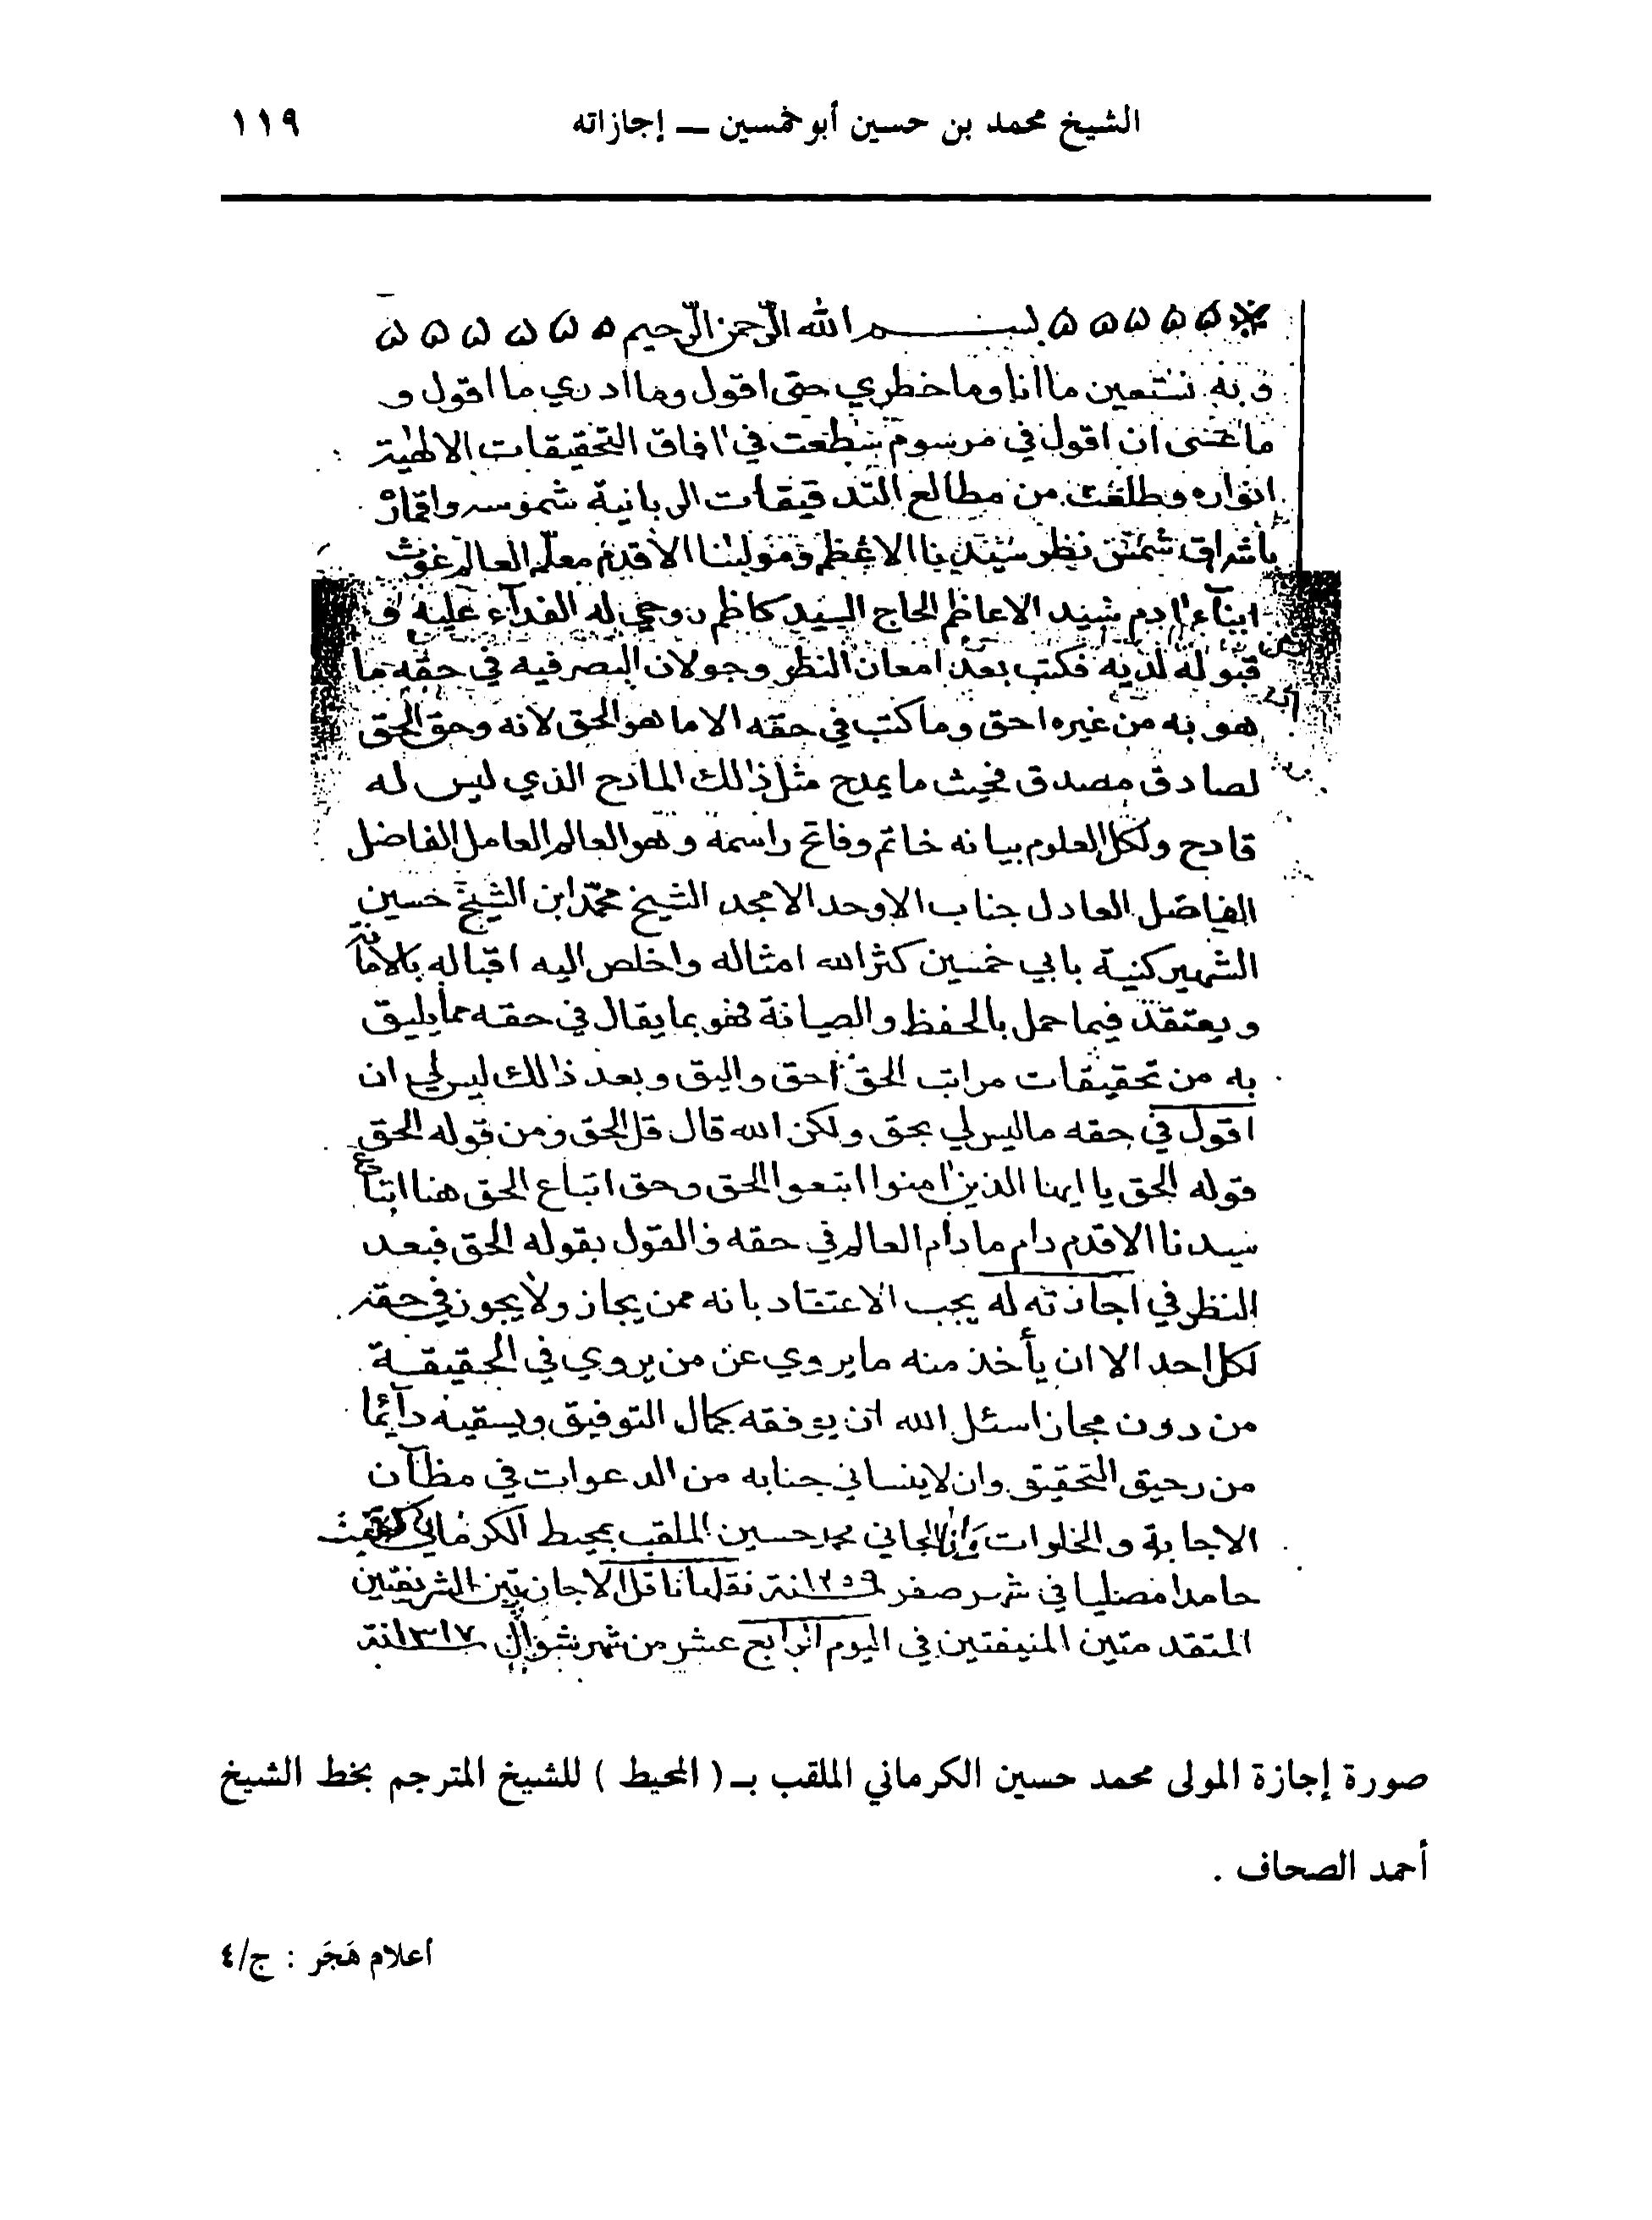 الشيخ محمد بن حسين أبو خمسين ــ إجازاته ١١٩
بسم الله الرحمن الرحيم
و به نستعين ما انا وما خطري حتى اقول وما ادري ما اقول و
ما عسى ان اقول في مرسوم سطعت في افاق التحقيقات الالهية
انواره وطلعت من مطالع التدقيقات الربانية شموسه واقماره
باشراق شمس نظر سيدنا الاعظم ومولينا الأقدم معلم العالم غوث
ابناء ادم سيد الاعاظم الحاج السيد كاظم روحي له الفداء عليه و
قبوله لديه فكتب بعد امعان النظر وجولان البصر فيه في حقه ما
هو به من غيره احق وما كتب في حقه الا ما هو الحق لانه وحق الحق
لصادق مصدق بحيث ما يمدح مثل ذالك المادح الذي ليس له
قادح ولكل العلوم بيانه خاتم وفاتح راسمه وهو العالم العامل الفاضل
الفاضل العادل جناب الاوحد الامجد الشيخ محمد ابن الشيخ حسين
الشهير كنية بابي خمسين كثر الله امثاله واخلص اليه اقباله بالامانة
و يعتقد فيما حمل بالحفظ والصيانة فهو بما يقال في حقه مما يليق
به من تحقيقات مراتب الحق احق واليق وبعد ذالك ليس لي ان
اقول في حقه ما ليس لي بحق ولكن الله قال قل الحق ومن قوله الحق
قوله الحق يا ايها الذين امنوا اتبعوا الحق وحق اتباع الحق هنا اتباع
سيدنا الاقدم دام ما دام العالم في حقه فالقول بقوله الحق فبعد
النظر في اجازته له يجب الاعتقاد بانه ممن يجاز ولا يجوز في حقه
لكل احد الا ان يأخذ منه ما يروي عن من يروي في الحقيقة
من دون مجاز اسئل الله ان يوفقه بكمال التوفيق ويسقيه دآئما
من رحيق التحقيق وان لا ينساني جنابه من الدعوات في مظآن
الاجابة والخلوات وانا الجاني محمد حسين الملقب بمحيط الكرماني
حامدا مصليا في شهر صفر سنة ١٢٥٩ نقلها ناقل الاجازتين الشريفتين
المتقدمتين المنيفتين في اليوم الرابع عشر من شهر شوال سنة ١٣١٧
صورة إجازة المولى محمد حسين الكرماني الملقب بـ ( المحيط ) للشيخ المترجم بخط الشيخ
أحمد الصحاف .
أعلام هَجَر : ج/٤